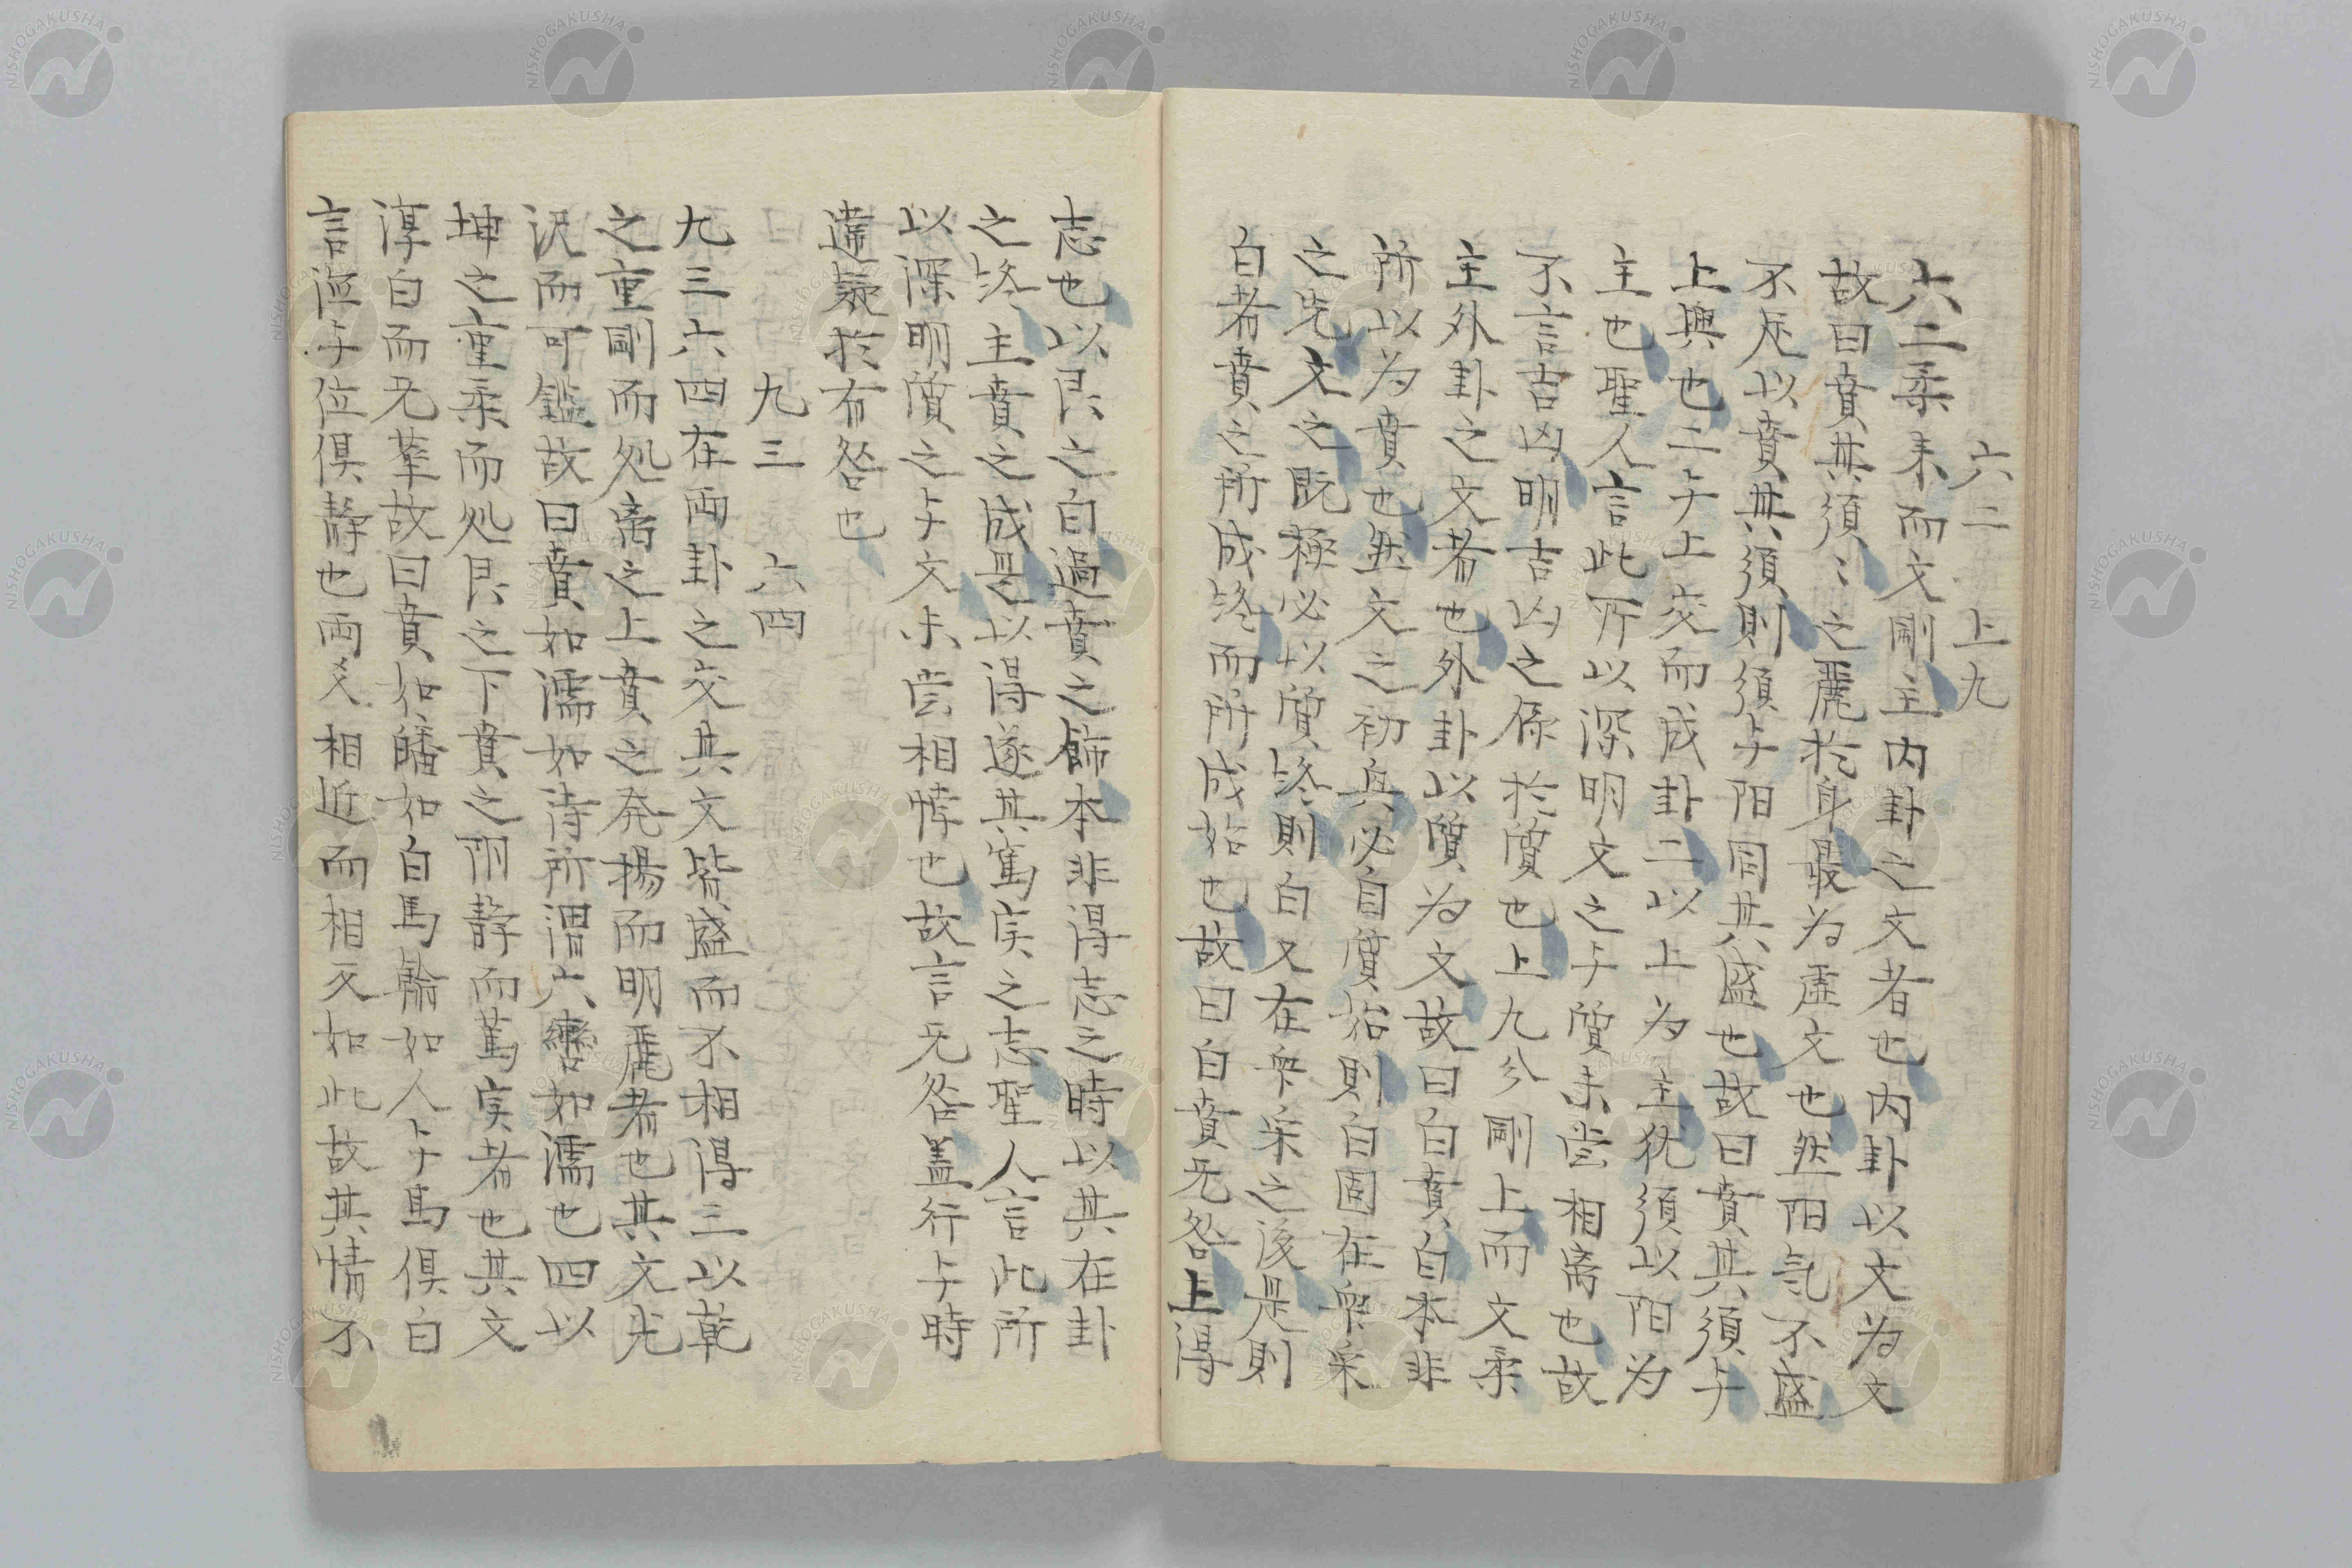 六二　上九
六二柔来而文剛主内卦之文者也内卦以文为文
故曰賁其須〻之麗於身最为虚文也然阳気不盛
不足以賁其須則須与阳同其盛也故曰賁其須与
上興也二与上交而成卦二以上为主犹須以阳为
主也聖人言此所以深明文之与質未尝相离也故
不言吉凶明吉凶之係於質也上九分剛上而文柔
主外卦之文者也外卦以質为文故曰白賁白本非
所以为賁也然文之初兵必自質始則白固在衆采
之先文之既極必以質终則白又在衆采之後是則
白者賁之所成终而所成始也故曰白賁无咎上得
志也以艮之白過賁之飾本非得志之時以其在卦
之终主賁之成是以得遂其篤实之志聖人言此所
以深明質之与文未尝相悖也故言无咎盖行与時
違疑於有咎也
九三　六四
九三六四在両卦之交其文皆盛而不相得三以乾
之重剛而処离之上賁之発揚而明麗者也其文光
沢而可鑑故曰賁如濡如诗所谓六轡如濡也四以
坤之重柔而処艮之下賁之用静而篤实者也其文
淳白而无華故曰賁如皤如白馬翰如人与馬俱白
言位与位俱静也両爻相近而相反如此故其情不